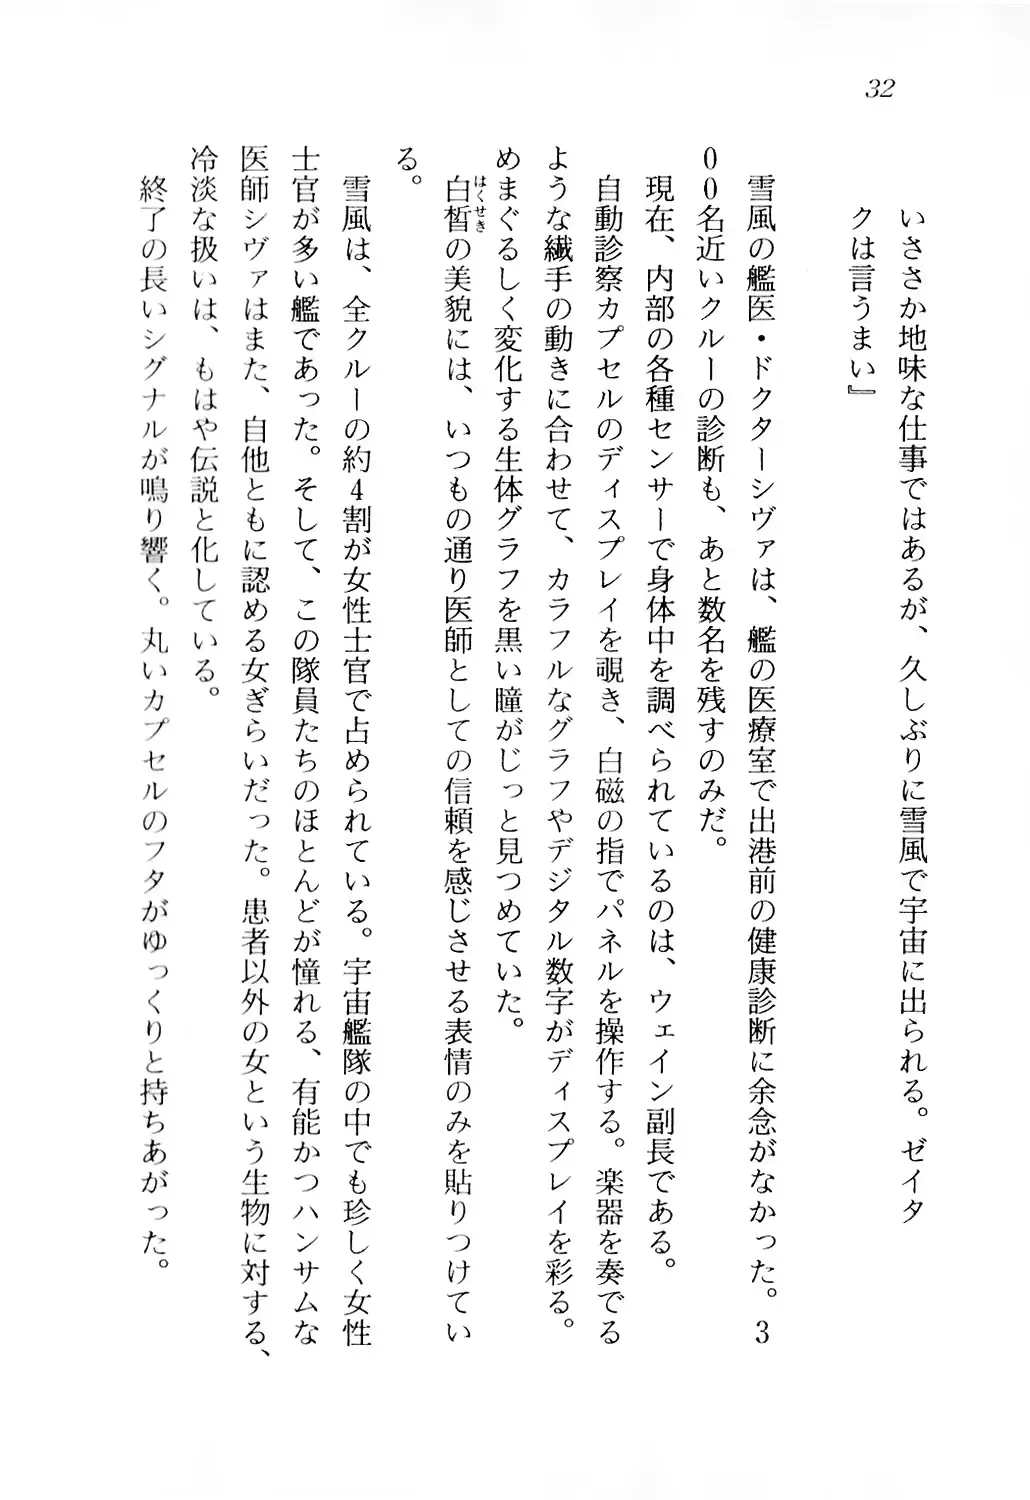 32
いささか地味な仕事ではあるが、久しぶりに雪風で宇宙に出られる。ゼイタ
クは言うまい』
雪風の艦医・ドクターシヴァは、艦の医療室で出港前の健康診断に余念がなかった。3
00名近いクルーの診断も、あと数名を残すのみだ。
現在、内部の各種センサーで身体中を調べられているのは、ウェイン副長である。
自動診察カプセルのディスプレイを覗き、白磁の指でパネルを操作する。楽器を奏でる
ような繊手の動きに合わせて、カラフルなグラフやデジタル数字がディスプレイを彩る。
めまぐるしく変化する生体グラフを黒い瞳がじっと見つめていた。
白皙の美貌には、いつもの通り医師としての信頼を感じさせる表情のみを貼りつけてい
はくせき
る。
雪風は、全クルーの約4割が女性士官で占められている。宇宙艦隊の中でも珍しく女性
士官が多い艦であった。そして、この隊員たちのほとんどが憧れる、有能かつハンサムな
医師シヴァはまた、自他ともに認める女ぎらいだった。患者以外の女という生物に対する、
冷淡な扱いは、もはや伝説と化している。
終了の長いシグナルが鳴り響く。丸いカプセルのフタがゆっくりと持ちあがった。